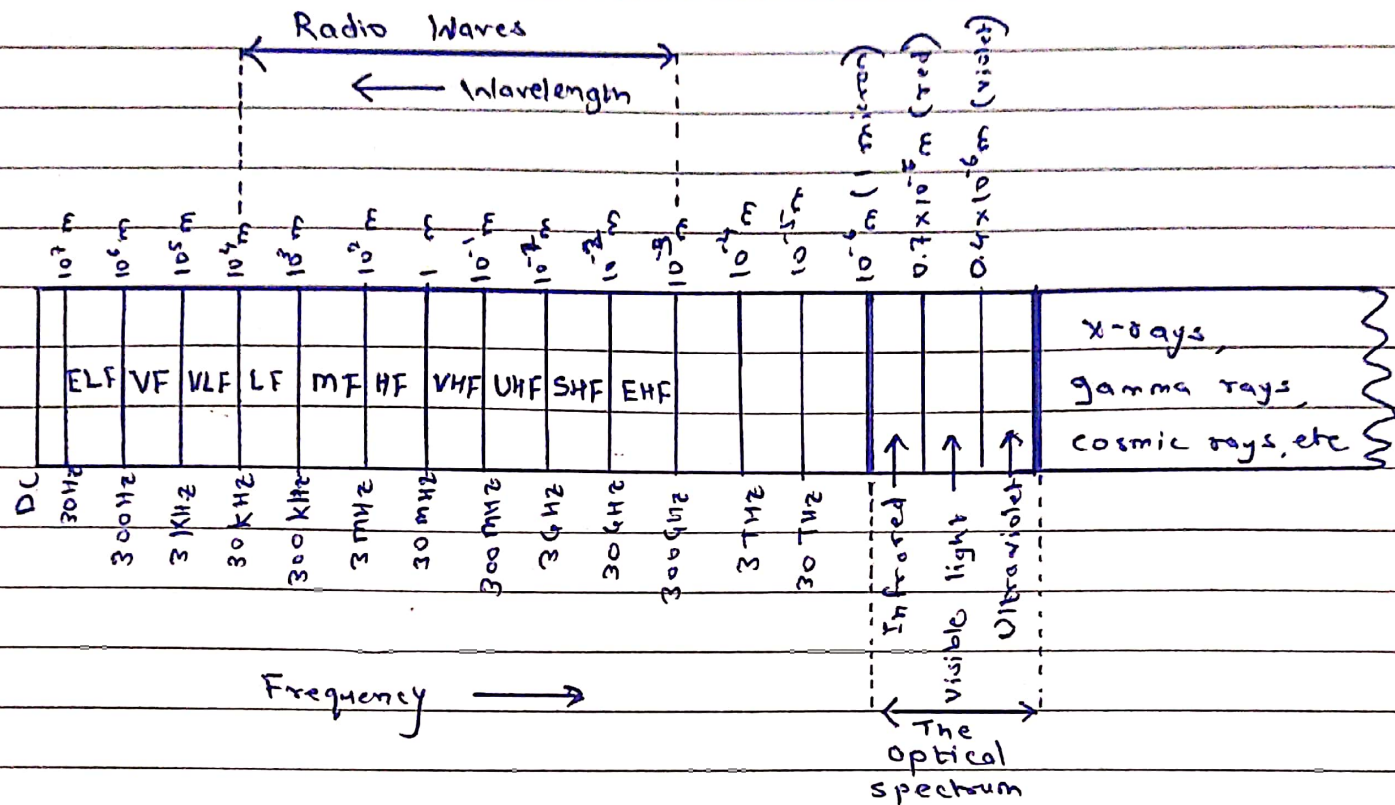 Radio Waves
← Wavelength
10⁷ m
10⁶ m
10⁵ m
10⁴ m
10³ m
10² m
1 m
10⁻¹ m
10⁻⁵ m
10⁻⁶ m (1 micron)
m (red)
0.4 × 10⁻⁶ m (violet)
ELF VF VLF LF MF HF VHF UHF SHF EHF
x-rays,
gamma rays,
cosmic rays, etc
DC
30HZ
300HZ
3KHZ
30KHZ
300KHZ
3MHZ
30MHZ
300MHZ
3GHZ
30GHZ
300GHZ
3THZ
30THZ
Infrared
Visible light
Ultraviolet
Frequency →
The
optical
spectrum